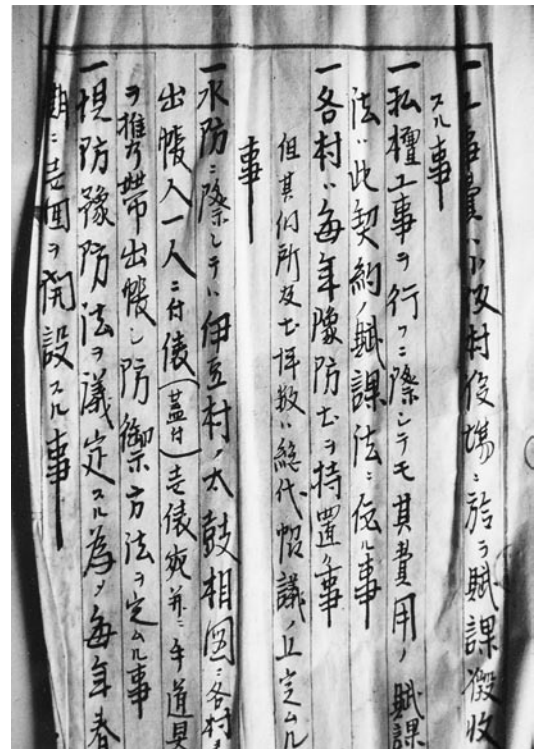 一工事費ハ小坂村役場ニ於テ賦課徴收
スル事
一私檀工事ヲ行フニ際シテモ其費用ノ賦課
法ハ此契約ノ賦課法ニ依ル事
一各村ハ毎年豫防土ヲ持置ク事
但其何所及土坪数ハ総代協議ノ上定ムル
事
一水防ニ際シテハ伊豆村ノ太鼓相圖ニ各村
出帳人一人ニ付俵(蓋付)壱俵宛并ニ手道具
ヲ携帯出帳シ防禦方法ヲ定ムル事
一堤防豫防法ヲ議定スル為メ毎年春
期ニ壱回ヲ開設スル事